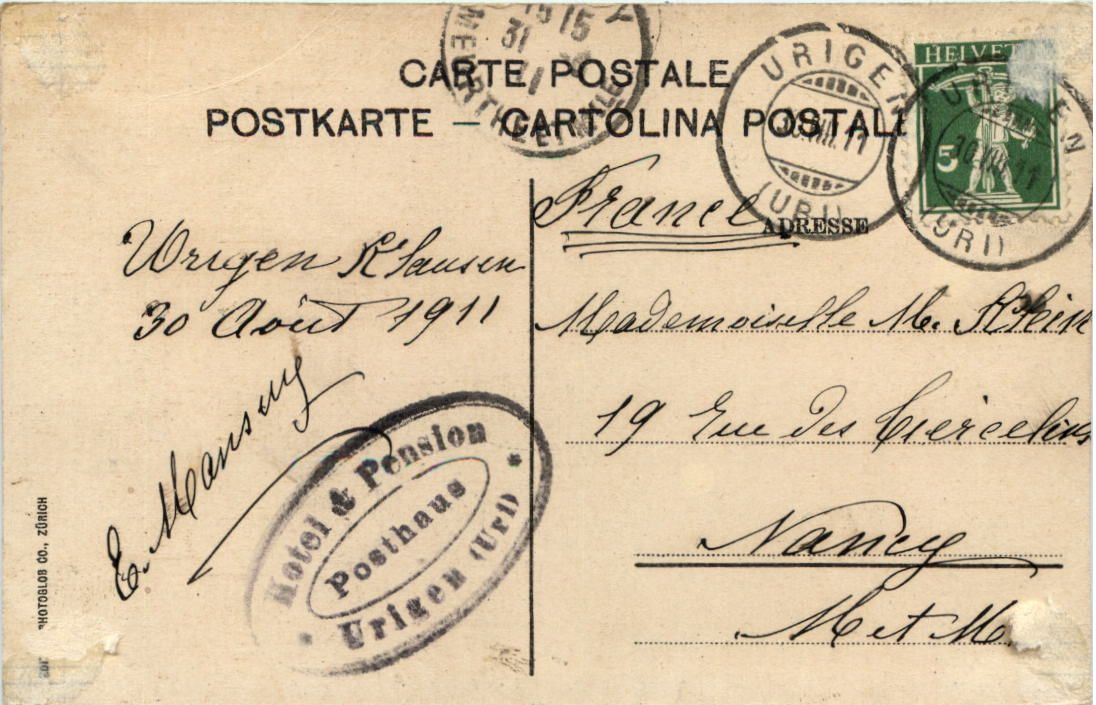 CARTE POSTALE
POSTKARTE – CARTOLINA POSTALE
ADRESSE
HELVET
5
URIGEN
VIII.11
(URI)
URIGEN
VIII.11
(URI)
31
MEURTHE
Urigen Klausen
30 Août 1911
E. Mansuy
Hotel & Pension
Posthaus
Urigen (Uri)
PHOTOGLOB CO., ZÜRICH
France
Mademoiselle M.
19 Rue des Tiercelins
Nancy
M et M.